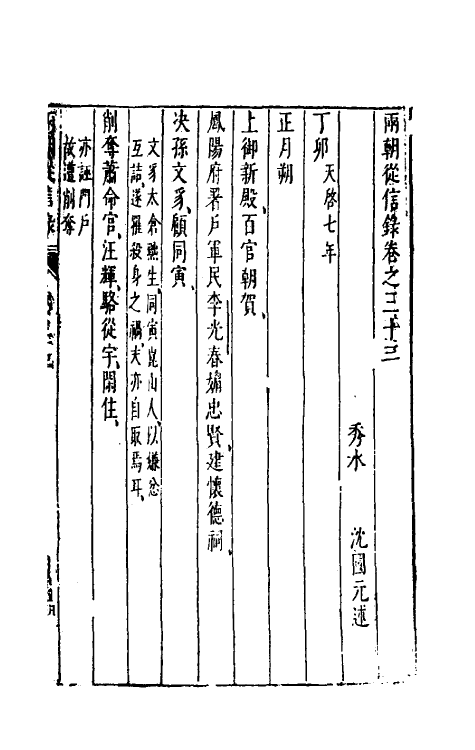 兩朝從信錄卷之三十三
秀水　沈國元述
丁卯　天啓七年
正月朔
上御新殿、百官朝賀、
鳳陽府署戶軍民李光春媚忠賢、建懷德祠、
决孫文豸、顧同寅、
文豸太倉縣生、同寅崑山人、以嫌忿
互詰、遂罹殺身之禍、夫亦自取焉耳、
削奪蕭命官、汪輝、駱從宇、閑住、
亦誣門戶
故遭削奪